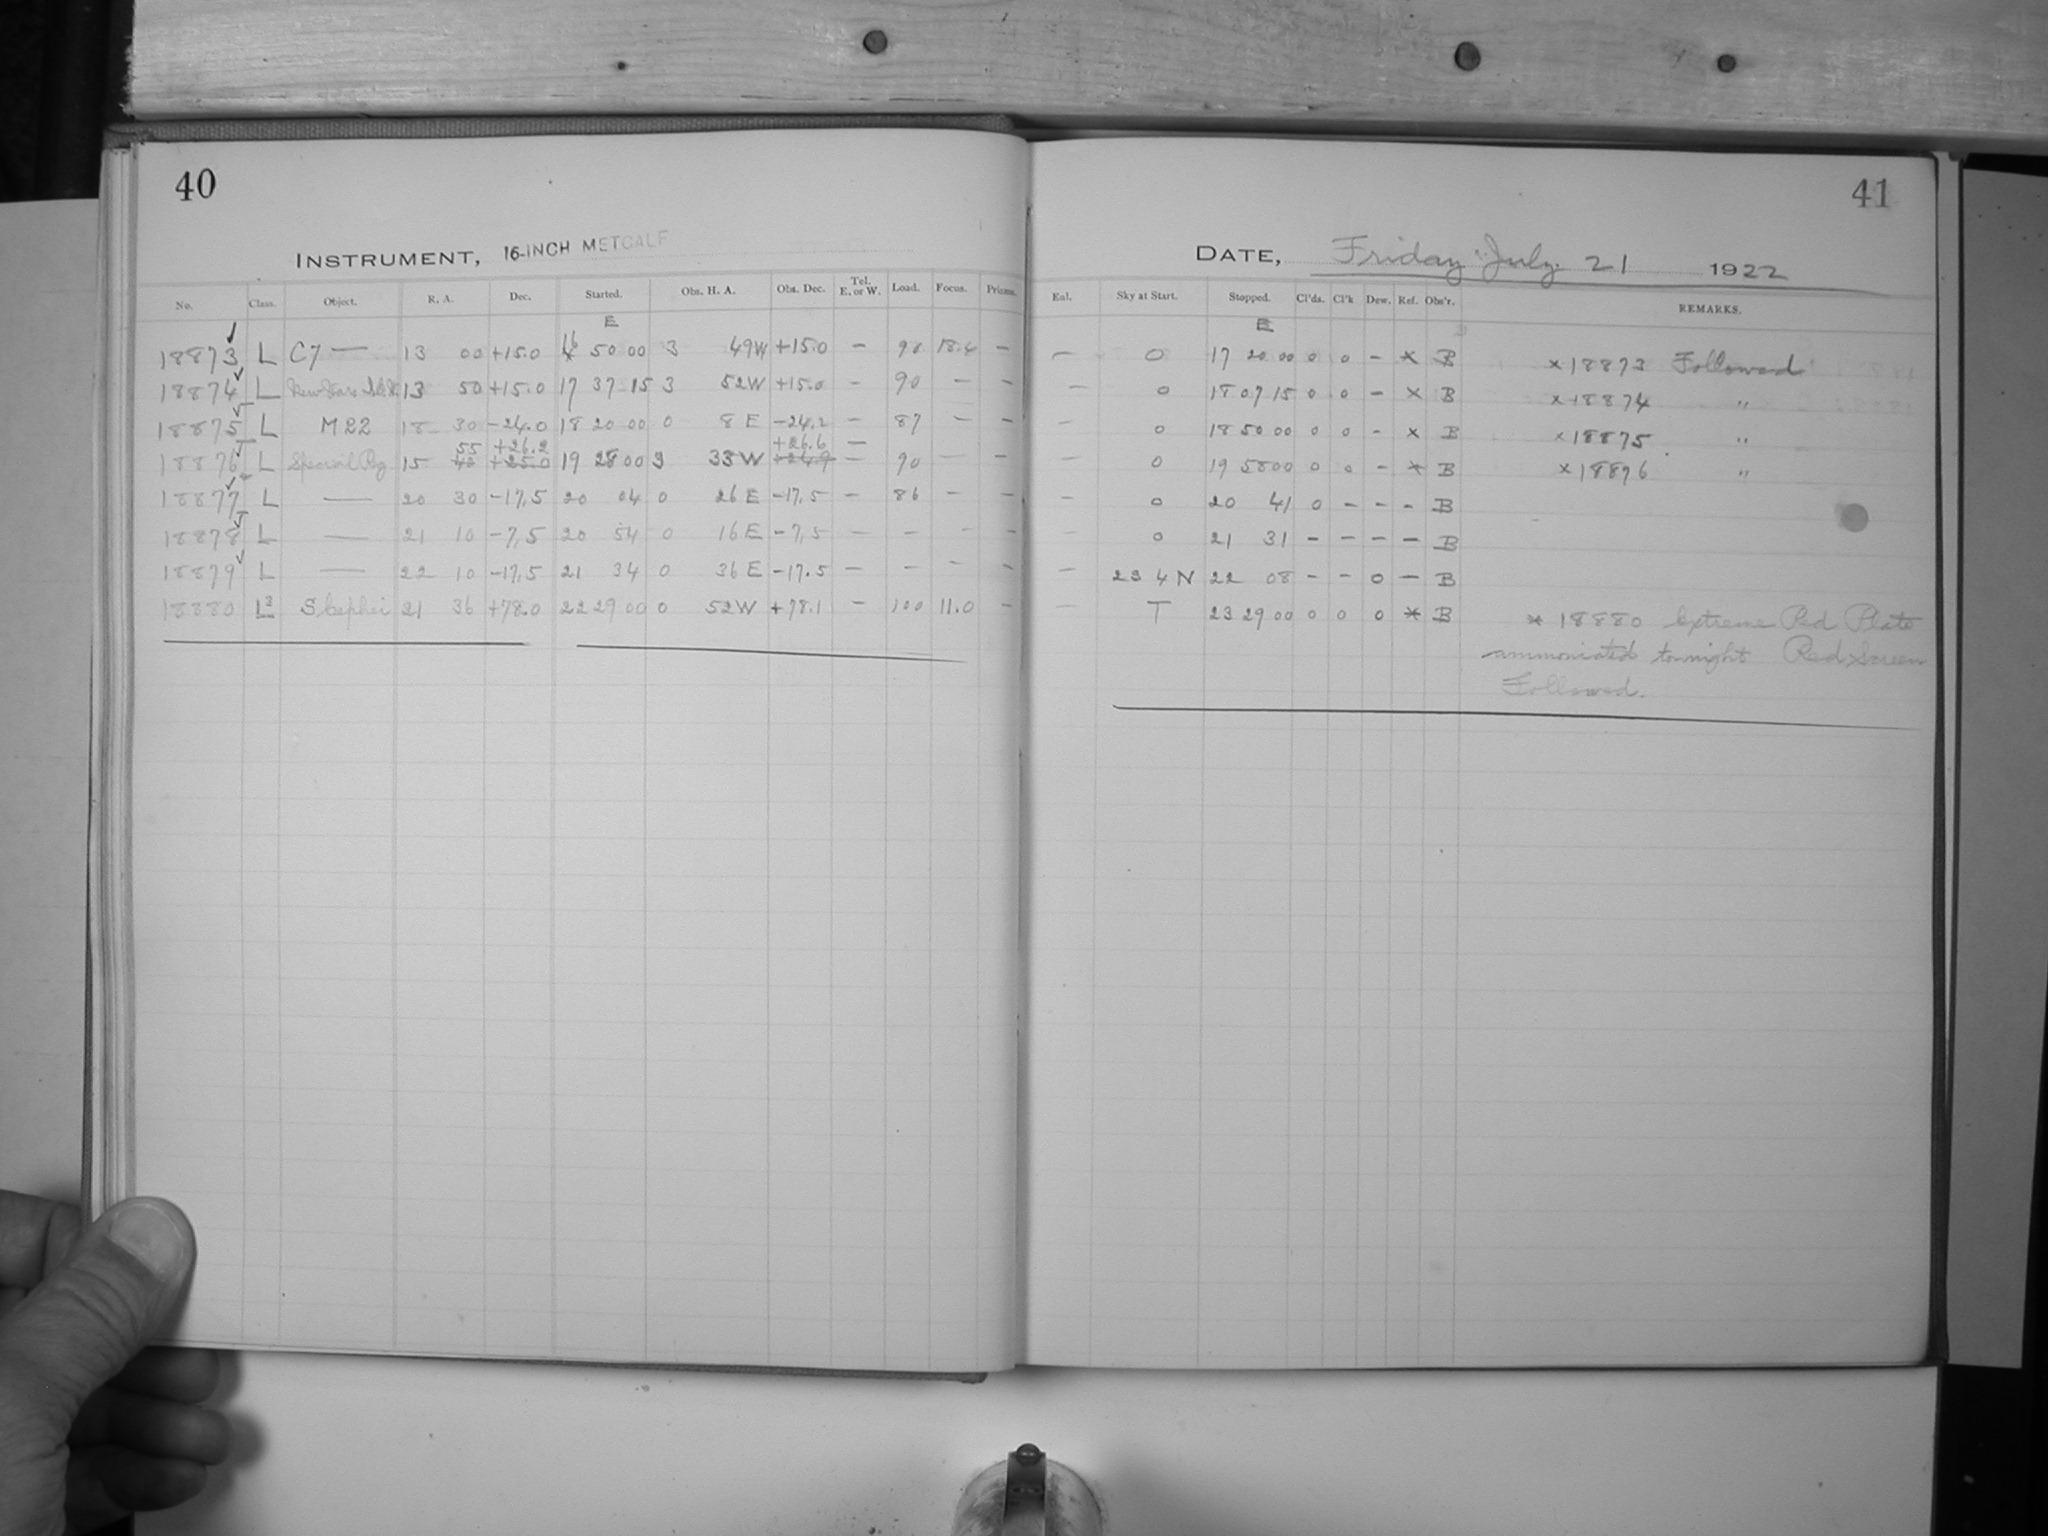 40
INSTRUMENT, 16-INCH METCALF
No. Class. Object. R. A. Dec. Started. Obs. H. A. Obs. Dec. Tel. E. or W. Load. Focus. Prisms.
E
18873 L C7 — 13 00 +15.0 16 50 00 3 49W +15.0 — 90 18.4 —
18874 L 13 50 +15.0 17 37 15 3 52W +15.0 — 90 — —
18875 L M22 18 30 -24.0 18 20 00 0 8 E -24.2 — 87 — —
55 +26.2 +26.6 —
18876 L Special Rg 15 +25.0 19 28 00 3 33W +24.9 — 90 — —
18877 L — 20 30 -17.5 20 04 0 26 E -17.5 — 86 — —
18878 L — 21 10 -7.5 20 54 0 16 E -7.5 — — — —
18879 L — 22 10 -17.5 21 34 0 36 E -17.5 — — — —
18880 L S Cephei 21 36 +78.0 22 29 00 0 52W +78.1 — 100 11.0 —
41
DATE, Friday July 21 1922
Enl. Sky at Start. Stopped. Cl'ds. Cl'k Dew. Ref. Obs'r. REMARKS.
E
— 0 17 20 00 0 0 — * B × 18873 Followed
— 0 18 07 15 0 0 — × B × 18874 "
— 0 18 50 00 0 0 - × B × 18875 "
— 0 19 58 00 0 0 — * B × 18876 "
— 0 20 41 0 - - - B
— 0 21 31 — — — — B
— 23 4 N 22 08 - - 0 — B
— T 23 29 00 0 0 0 * B * 18880 Extreme Red Plate
ammoniated to-night Red Screen
Followed.